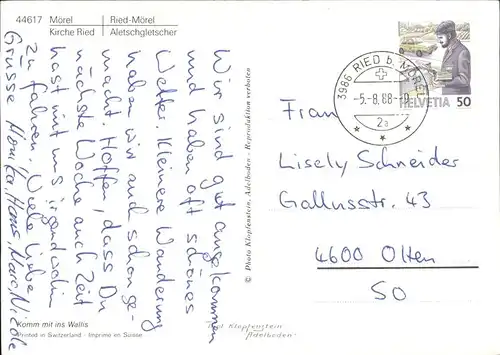 44617
Mörel
Kirche Ried
Ried-Mörel
Aletschgletscher
Wir sind gut angekommen
und haben oft schönes
Wetter. Kleinere Wanderung
haben wir auch schon ge-
macht. Hoffen, dass Du
nächste Woche auch Zeit
hast mit uns irgendwohin
zu fahren. Viele liebe
Grüsse Monika, Hans, Marc, Nicole
Komm mit ins Wallis
Printed in Switzerland - Imprime en Suisse
© Photo Klopfenstein, Adelboden - Reproduktion verboten
Klopfenstein
Adelboden
3986 RIED b. MÖREL
-5.-8.88-
2a
HELVETIA 50
Frau
Lisely Schneider
Gallusstr. 43
4600 Olten
SO